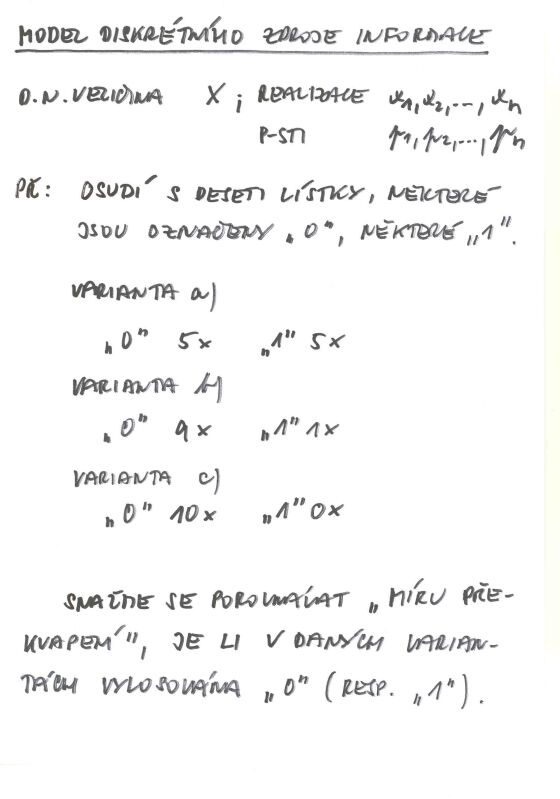 MODEL DISKRÉTNÍHO ZDROJE INFORMACE
D.N.VELIČINA X; REALIZACE x1, x2, ..., xn
P-STI p1, p2, ..., pn
PŘ: OSUDÍ S DESETI LÍSTKY, NĚKTERÉ
JSOU OZNAČENY „0", NĚKTERÉ „1".
VARIANTA a)
„0" 5x „1" 5x
VARIANTA b)
„0" 9x „1" 1x
VARIANTA c)
„0" 10x „1" 0x
SNAŽME SE POROVNÁVAT „MÍRU PŘE-
KVAPENÍ", JE LI V DANÝCH VARIAN-
TÁCH VYLOSOVÁNA „0" (RESP. „1").